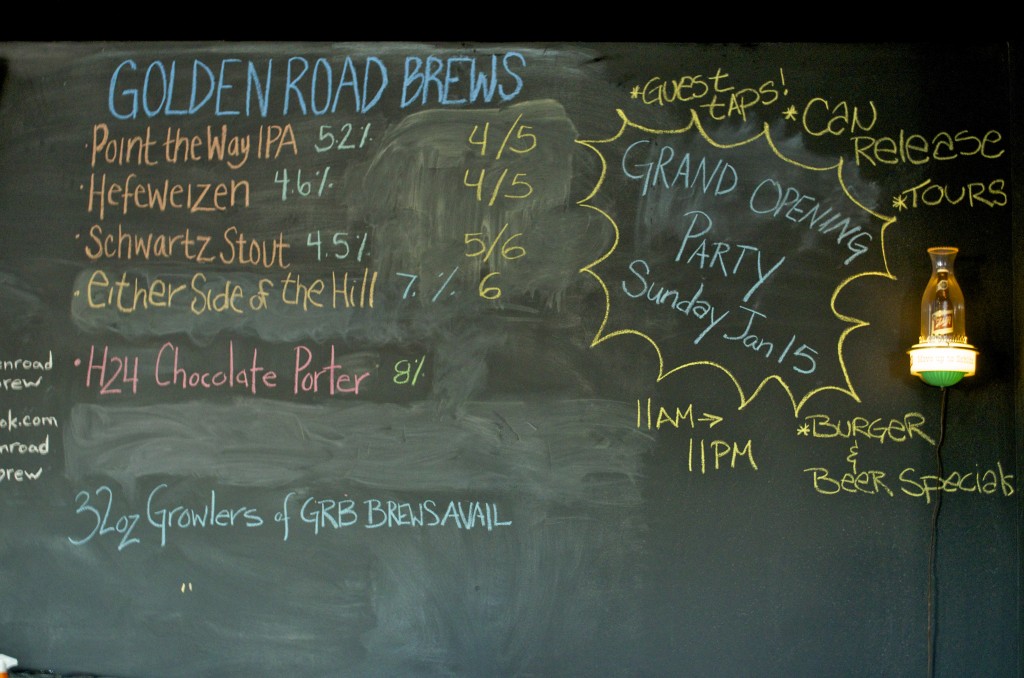 GOLDEN ROAD BREWS
· Point the Way IPA 5.2% 4/5
· Hefeweizen 4.6% 4/5
· Schwartz Stout 4.5% 5/6
· Either Side of the Hill 7.% 6
· H24 Chocolate Porter 8%
32oz Growlers of GRB BREWS AVAIL
enroad
brew
ok.com
enroad
brew
*GUEST
TAPS!
*CAN
RELEASE
*TOURS
GRAND OPENING
PARTY
Sunday Jan 15
11AM →
11PM
*BURGER
&
BEER Specials